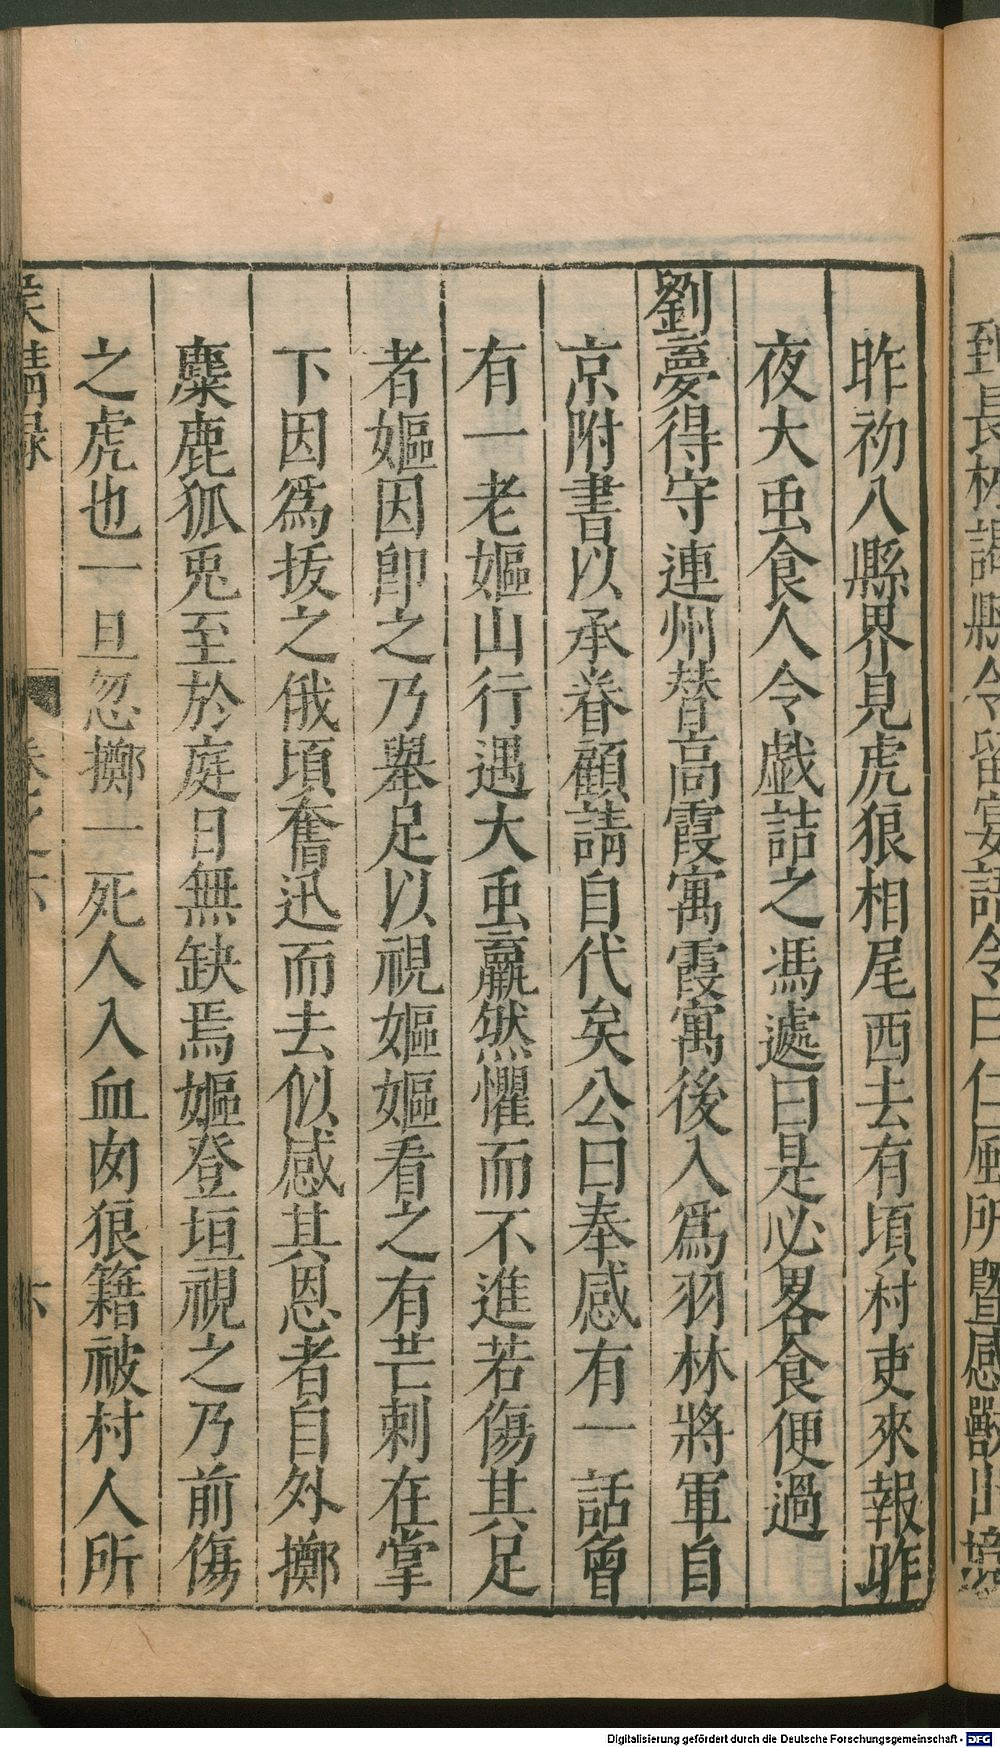 到長林謁縣令留宴語令曰仁風所曁感獸出境
昨初入縣界見虎狼相尾西去有頃村吏來報昨
夜大䖝食人令戱詰之馮遽曰是必畧食便過
劉夢得守連州替高霞寓霞寓後入爲羽林將軍自
京附書以承眷顧請自代矣公曰奉感有一話曾
有一老嫗山行遇大䖝羸然懼而不進若傷其足
者嫗因卽之乃舉足以視嫗嫗看之有芒刺在掌
下因爲㧞之俄頃奮迅而去似感其恩者自外擲
麋鹿狐兎至於庭日無缺焉嫗登垣視之乃前傷
之虎也一旦忽擲一死人入血肉狼籍被村人所
侯鯖錄 卷之六 六
Digitalisierung gefördert durch die Deutsche Forschungsgemeinschaft - DFG